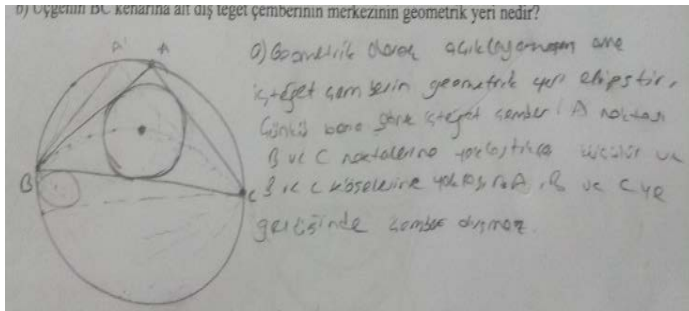 b) Üçgenin BC kenarına ait dış teğet çemberinin merkezinin geometrik yeri nedir?
A' A
a) Geometrik olarak açıklayamam ama
içteğet çemberin geometrik yeri elipstir.
Çünkü bana göre içteğet çember A noktası
B ve C noktalarına yaklaştıkça küçülür ve
B
C B ve C köşelerine A, B ve C ye
geldiğinde çember